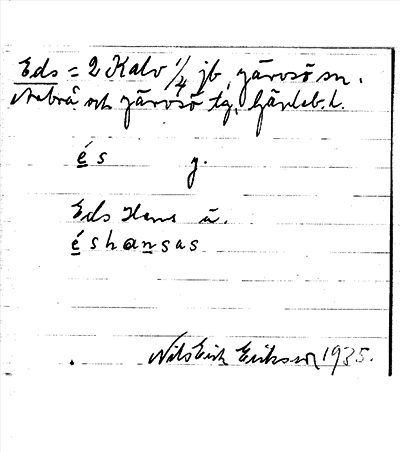 Eds = 2 Kalv 1/4 jb, Järvsö sn.
Arbrå och Järvsö tg, Gävleb. l.
é s g.
Eds Hans ä.
é s h a n s a s
Nils Erik Eriksson 1935.